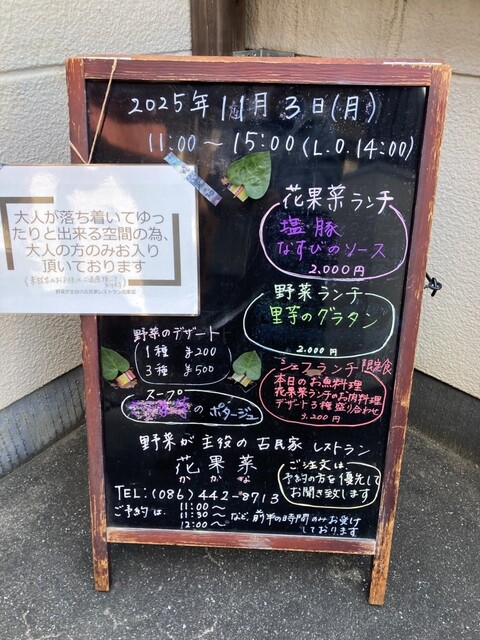 2025年11月3日(月)
11:00〜15:00(L.O.14:00)
大人が落ち着いてゆっ
たりと出来る空間の為、
大人の方のみお入り
頂いております
野菜が主役の古民家レストラン花果菜
花果菜ランチ
塩豚
なすびのソース
2.000円
野菜ランチ
里芋のグラタン
2.000円
野菜のデザート
1種 ¥200
3種 ¥500
シェフランチ 限定食
本日のお魚料理
花果菜ランチのお肉料理
デザート3種盛り合わせ
スープ
のポタージュ
野菜が主役の古民家レストラン
花果菜
かかな
ご注文は、
予約の方を優先して
お聞き致します
TEL:(086)442-8713
ご予約は、11:00〜
11:30〜
12:00〜
など、前半の時間のみお受け
しております